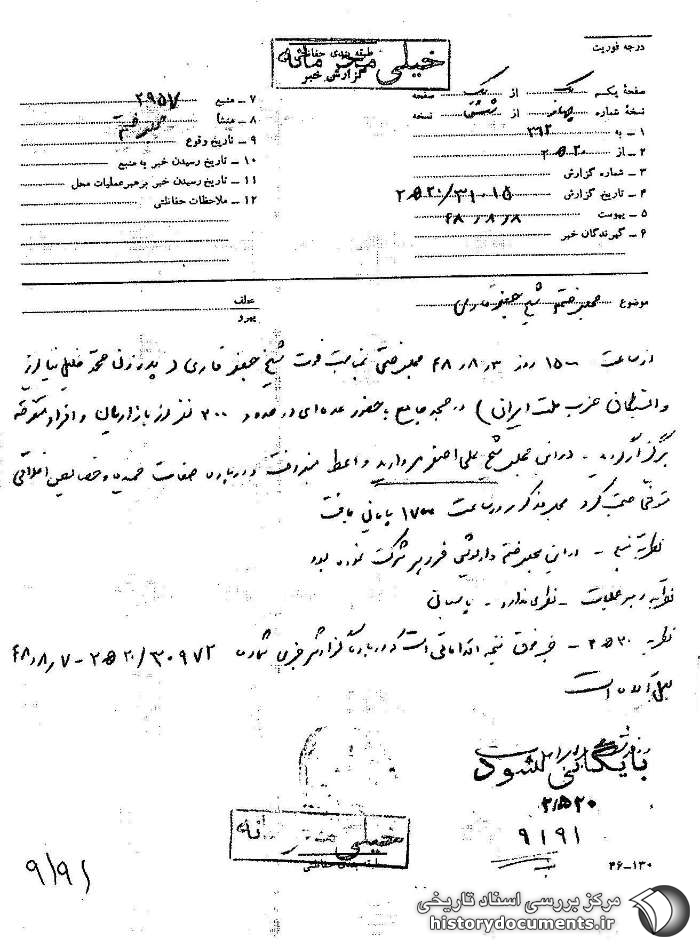 درجه فوریت
طبقه بندی حفاظتی
خیلی محرمانه
گزارش خبر
صفحهٔ یک از یک صفحه
نسخهٔ شماره چهار از شش نسخه
۱ ـ به ۳۱۲
۲ ـ از ۲۰ ه ۲
۳ ـ شماره گزارش
۴ ـ تاریخ گزارش ۳۱۰۱۵/۲۰ ه ۲
۵ ـ پیوست ۴۸/۸/۸
۶ ـ گیرندگان خبر
۷ ـ منبع ۲۹۵۷
۸ ـ منشأ مجلس ختم
۹ ـ تاریخ وقوع
۱۰ ـ تاریخ رسیدن خبر به منبع
۱۱ ـ تاریخ رسیدن خبر برهبر عملیات محل
۱۲ ـ ملاحظات حفاظتی
موضوع مجلس ختم شیخ جعفر قاری
عطف
پیرو
از ساعت ۱۵۰۰ روز ۴۸/۸/۳ مجلس ختمی بمناسبت فوت شیخ جعفر قاری (پدر زن محمد خلیل نیا از
وابستگان حزب ملت ایران) در مسجد جامع با حضور عده‌ای در حدود ۳۰۰ نفر از بازاریان و افراد متفرقه
برگزار گردید ـ در این مجلس شیخ علی اصغر مروارید واعظ منبر رفت و درباره صفات حمیده و خصایص اخلاقی
متوفی صحبت کرد مجلس مذکور در ساعت ۱۷۰۰ پایان یافت
نظریه منبع ـ در این مجلس ختم داریوش فروهر شرکت نموده بود
نظریه رهبر عملیات ـ نظری ندارد ـ
نظریه ۲۰ ه ۲ ـ خبر فوق نتیجه اقداماتی است که درباره گزارش خبری شماره ۳۰۹۷۲/۲۰ ه ۲ ـ ۴۸/۸/۷
بعمل آمده است
بایگانی شود
۲۰ ه ۲
۹/۹/
خیلی محرمانه
طبقه بندی حفاظتی
۹/۹/
۴۶-۱۳۰
مرکز بررسی اسناد تاریخی
historydocuments.ir